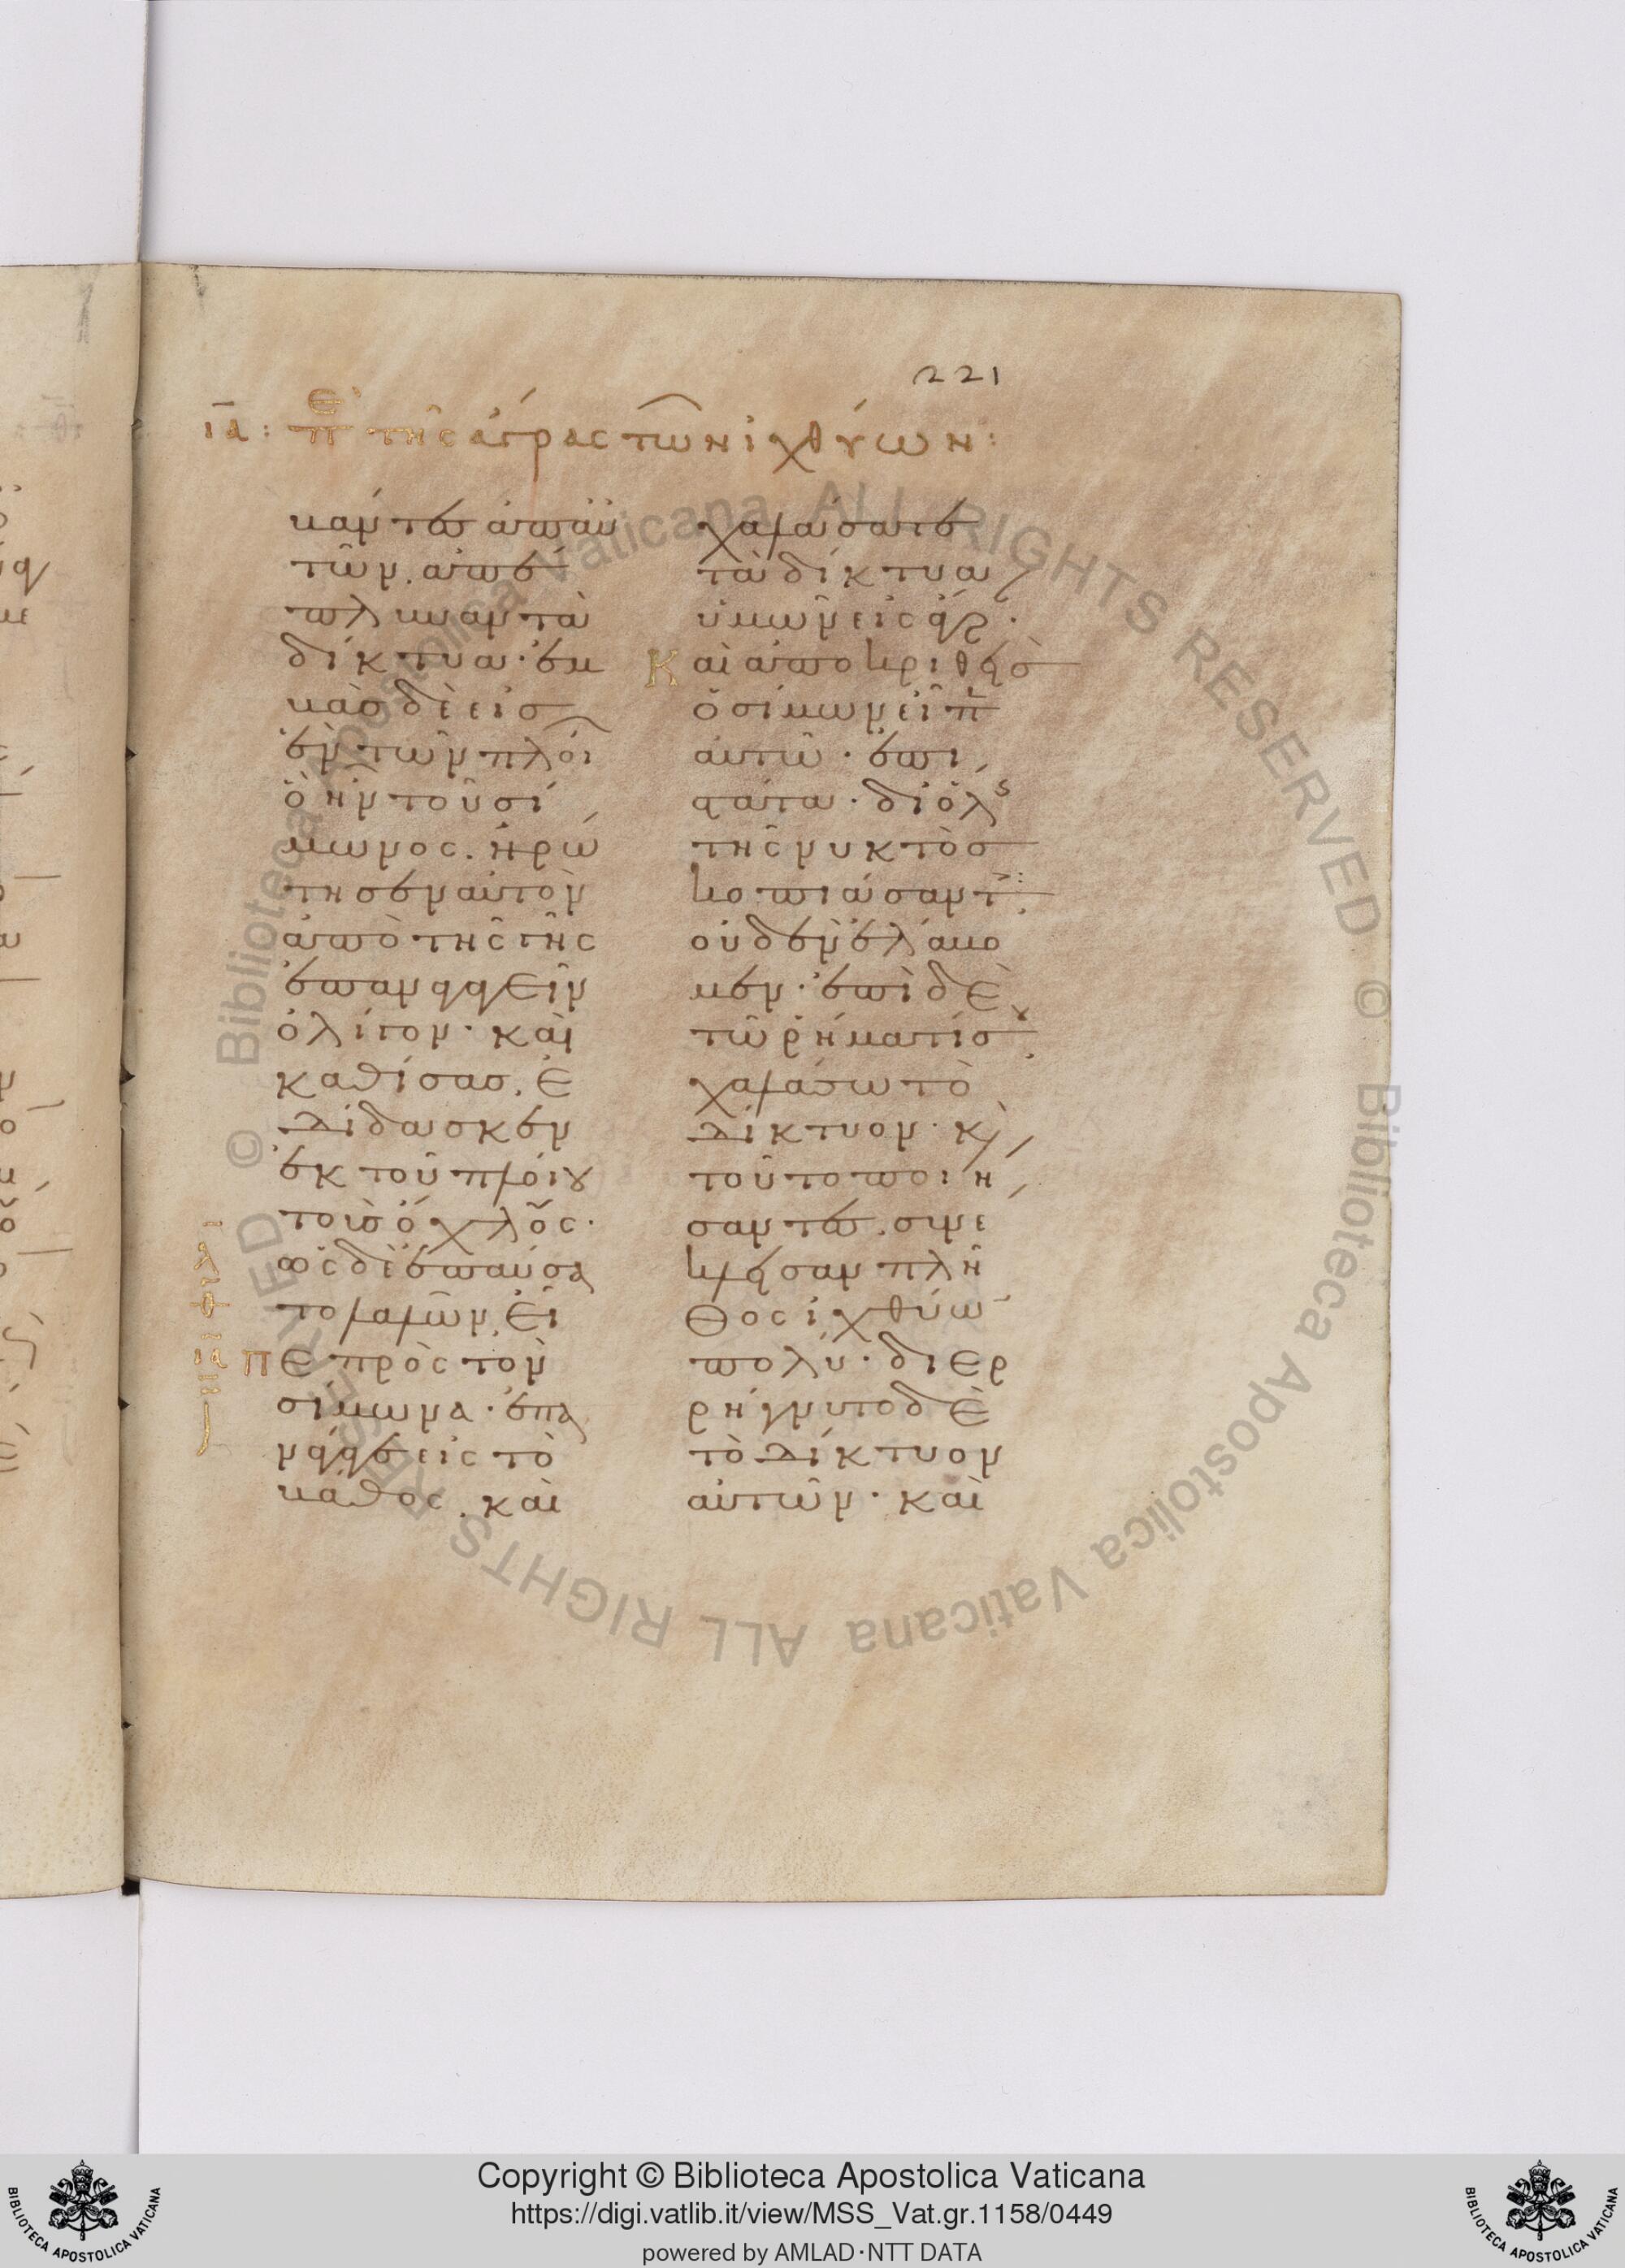 221
ια: Επι τῆς ἄγρας τῶν ἰχθύων:
κάντες ἀπ' αὐ
τῶν. ἀπέ
πλυναν τὰ
δίκτυα· ἐμ
βὰς δὲ εἰς
ἓν τῶν πλοί
ὃ ἦν τοῦ Σί
μωνος. ἠρώ
τησεν αὐτὸν
ἀπὸ τῆς γῆς
ἐπαναγαγεῖν
ὀλίγον· καὶ
καθίσας. ἐ
δίδασκεν
ἐκ τοῦ πλοίου
τοὺς ὄχλους·
ὡς δὲ ἐπαύσα
το λαλῶν. εἶ
ΠΕ πρὸς τὸν
Σίμωνα· ἐπα
νάγαγε εἰς τὸ
βάθος. καὶ
χαλάσατε
τὰ δίκτυα
ὑμῶν εἰς ἄγρ·
Καὶ ἀποκριθεὶς
ὁ Σίμων εἶπ
αὐτῷ· ἐπι
στάτα· δι' ὅλης
τῆς νυκτὸς
κοπιάσαντ
οὐδὲν ἐλάβο
μεν· ἐπὶ δὲ
τῷ ῥήματί σου
χαλάσω τὸ
δίκτυον· κὶ
τοῦτο ποιή
σαντες. συνέ
κλεισαν πλῆ
θος ἰχθύων
πολύ· διερ
ρήγνυτο δὲ
τὸ δίκτυον
αὐτῶν· καὶ
Copyright © Biblioteca Apostolica Vaticana
https://digi.vatlib.it/view/MSS_Vat.gr.1158/0449
powered by AMLAD·NTT DATA
BIBLIOTECA APOSTOLICA VATICANA
BIBLIOTECA APOSTOLICA VATICANA
© Biblioteca Apostolica Vaticana ALL RIGHTS RESERVED © Biblioteca Apostolica Vaticana ALL RIGHTS RESERVED